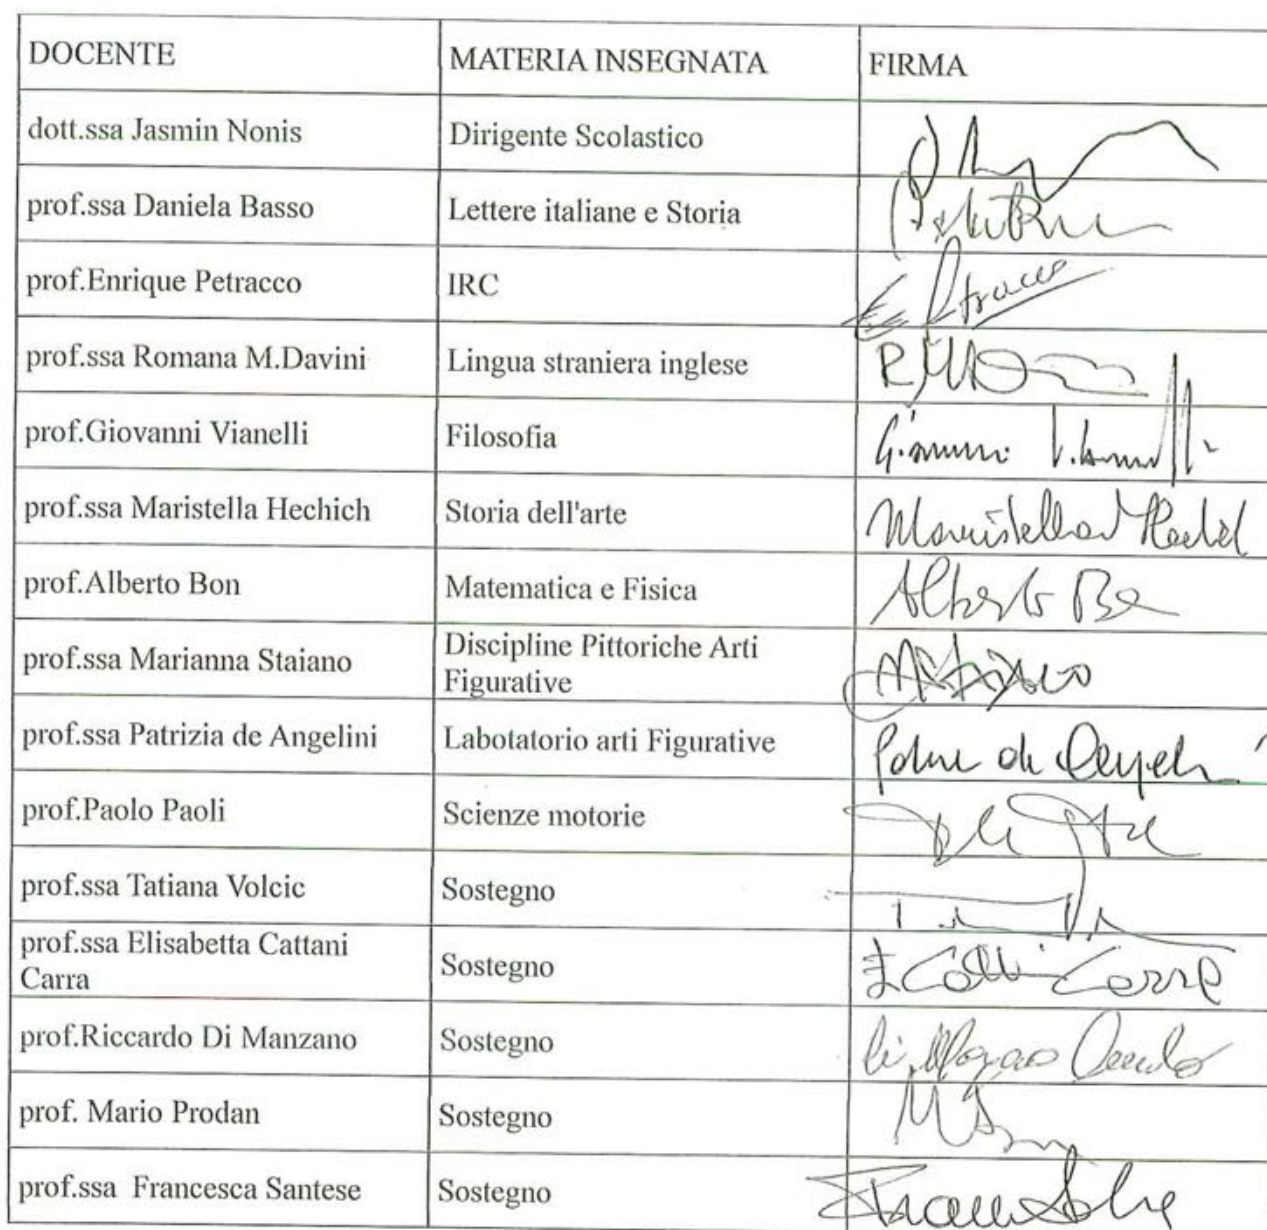 DOCENTE MATERIA INSEGNATA FIRMA
dott.ssa Jasmin Nonis Dirigente Scolastico
prof.ssa Daniela Basso Lettere italiane e Storia
prof.Enrique Petracco IRC
prof.ssa Romana M.Davini Lingua straniera inglese
prof.Giovanni Vianelli Filosofia
prof.ssa Maristella Hechich Storia dell'arte Maristella
prof.Alberto Bon Matematica e Fisica Alberto
prof.ssa Marianna Staiano Discipline Pittoriche Arti
Figurative
prof.ssa Patrizia de Angelini Labotatorio arti Figurative
prof.Paolo Paoli Scienze motorie
prof.ssa Tatiana Volcic Sostegno
prof.ssa Elisabetta Cattani
Carra Sostegno
prof.Riccardo Di Manzano Sostegno
prof. Mario Prodan Sostegno
prof.ssa Francesca Santese Sostegno